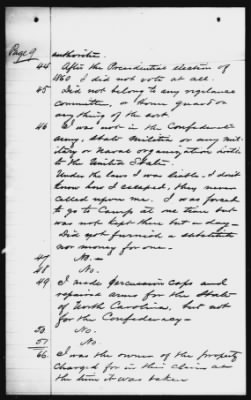 Page 9
authorities.
44 After the Presidential election of
1860 I did not vote at all.
45 Did not belong to any vigilance
committee, or home guard or
any thing of the sort.
46 I was not in the Confederate
army, State Militia or any mil
itary or Naval organization hostile
to the United States.
Under the laws I was liable. I don't
know how I escaped, they never
called upon me. I was forced
to go to Camp at one time but
was not kept there but a day
Did not furnish a substitute
nor money for one.
47 No.
48 No.
49 I made percussion caps and
repaired arms for the State
of North Carolina, but not
for the Confederacy
50 No.
51 No.
66 I was the owner of the property
charged for in this claim at
the time it was taken